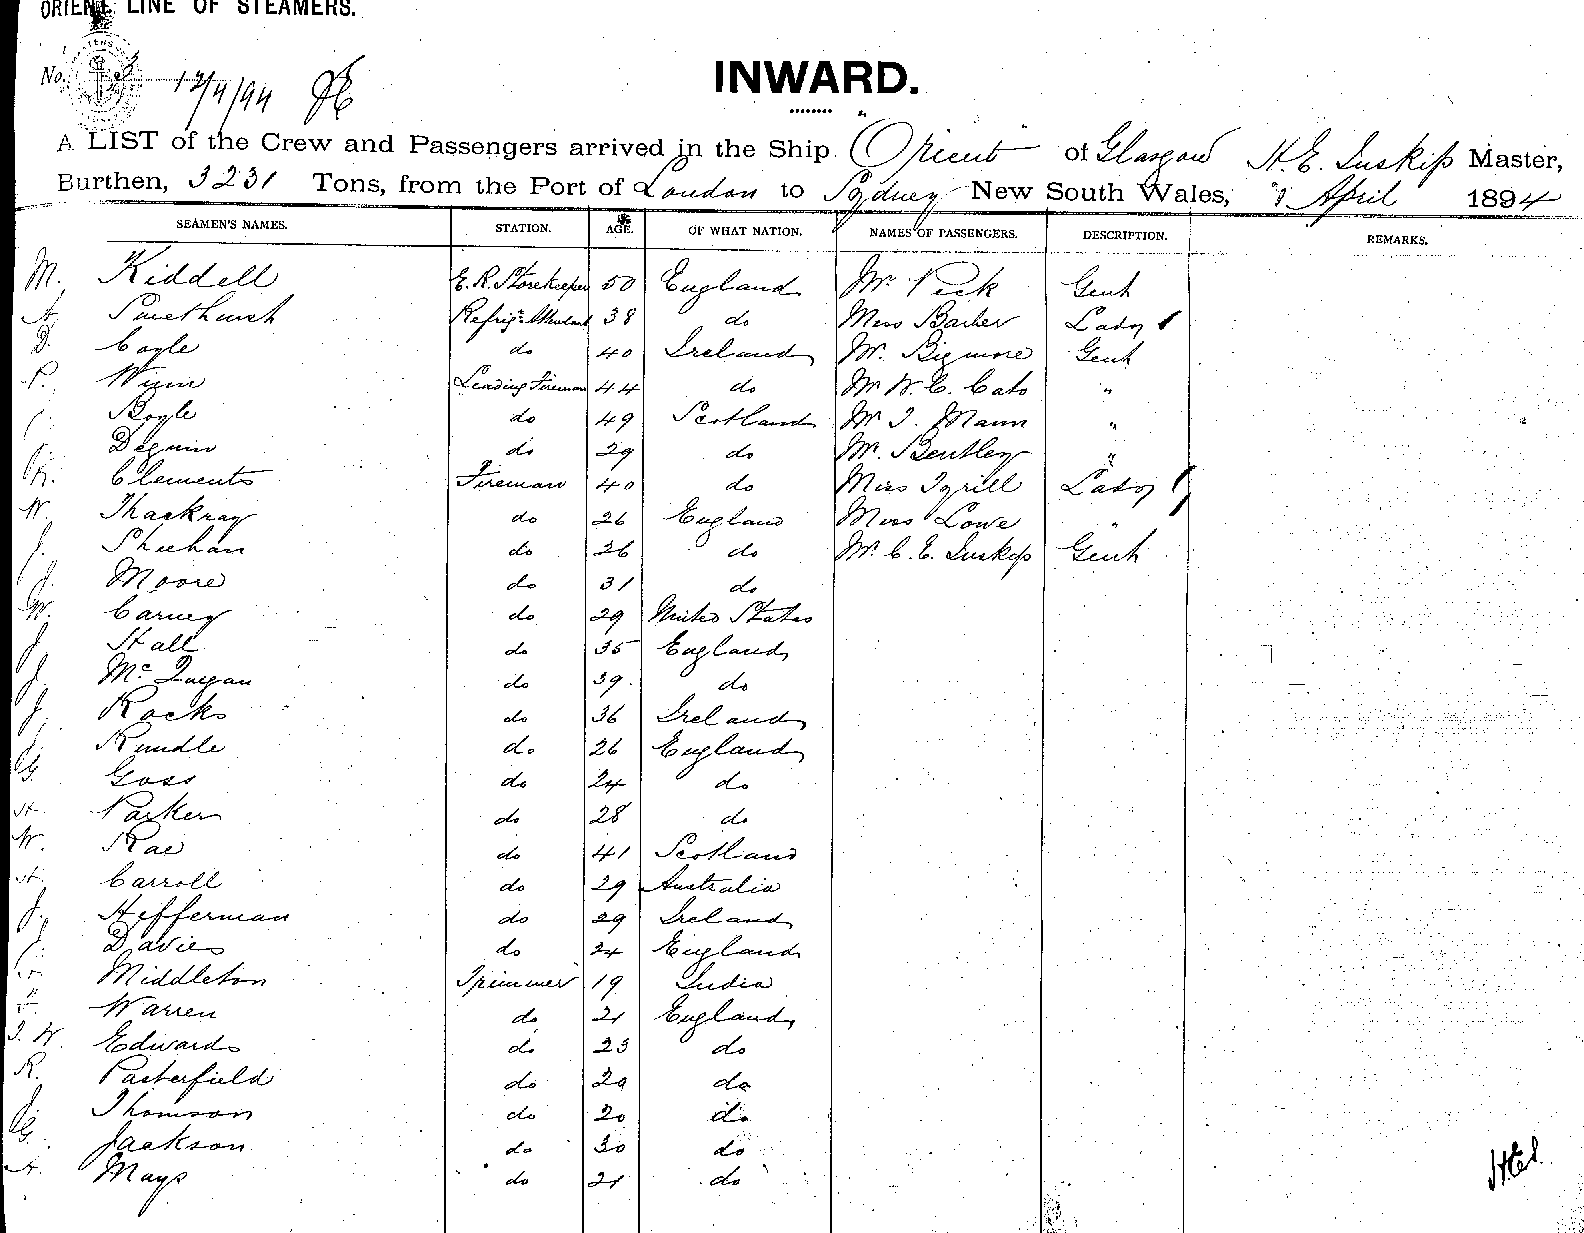 ORIENT LINE OF STEAMERS.
No. 12/4/94
INWARD.
A LIST of the Crew and Passengers arrived in the Ship Orient of Glasgow H. E. Inskip Master,
Burthen, 3231 Tons, from the Port of London to Sydney New South Wales, April 1894
SEAMEN'S NAMES. STATION. AGE. OF WHAT NATION. NAMES OF PASSENGERS. DESCRIPTION. REMARKS.
M. Kiddell E. R. Storekeeper 50 England Mr Peck Gent
A. Smethurst Refrigr Attendant 38 do Miss Barber Lady 1
D. Coyle do 40 Ireland Mr. Bigmore Gent
P. Wynn Leading Fireman 44 do Mr W. C. Cato "
J. Boyle do 49 Scotland Mr J. Mann "
J. Degnin do 29 do Mr. Bentley "
R. Clements Fireman 40 do Miss Tyrill Lady 1
W. Thackray do 26 England Miss Lowe "
J. Sheehan do 26 do Mr. C. E. Inskip Gent
J. Moore do 31 do
W. Carney do 29 United States
J. Hall do 35 England
J. Mc Guigan do 39 do
J. Rocks do 36 Ireland
J. Rundle do 26 England
G. Goss do 24 do
H. Parker do 28 do
W. Rae do 41 Scotland
H. Carroll do 29 Australia
J. Hefferman do 29 Ireland
J. Davies do 24 England
Middleton Trimmer 19 India
F. Warren do 21 England
J. W. Edwards do 23 do
R. Pasterfield do 29 do
J. Thomson do 20 do
G. Jackson do 30 do
A. Mays do 21 do